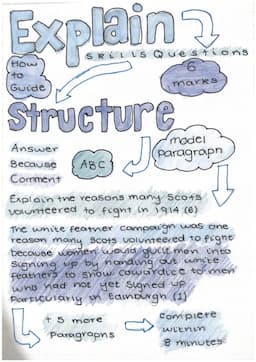 Explain
skills Questions
How
to
Guide
6
marks
Structure
Answer
Because
Comment
ABC
model
paragraph
Explain the reasons many Scots
volunteered to fight in 1914 (6)
The white feather campaign was one
reason many Scots volunteered to fight
because women would guilt men into
signing up by handing out white
feathers to show cowardice to men
who had not yet signed up
particularly in Edinburgh (1)
+ 5 more
Paragraphs
complete
within
8 minutes